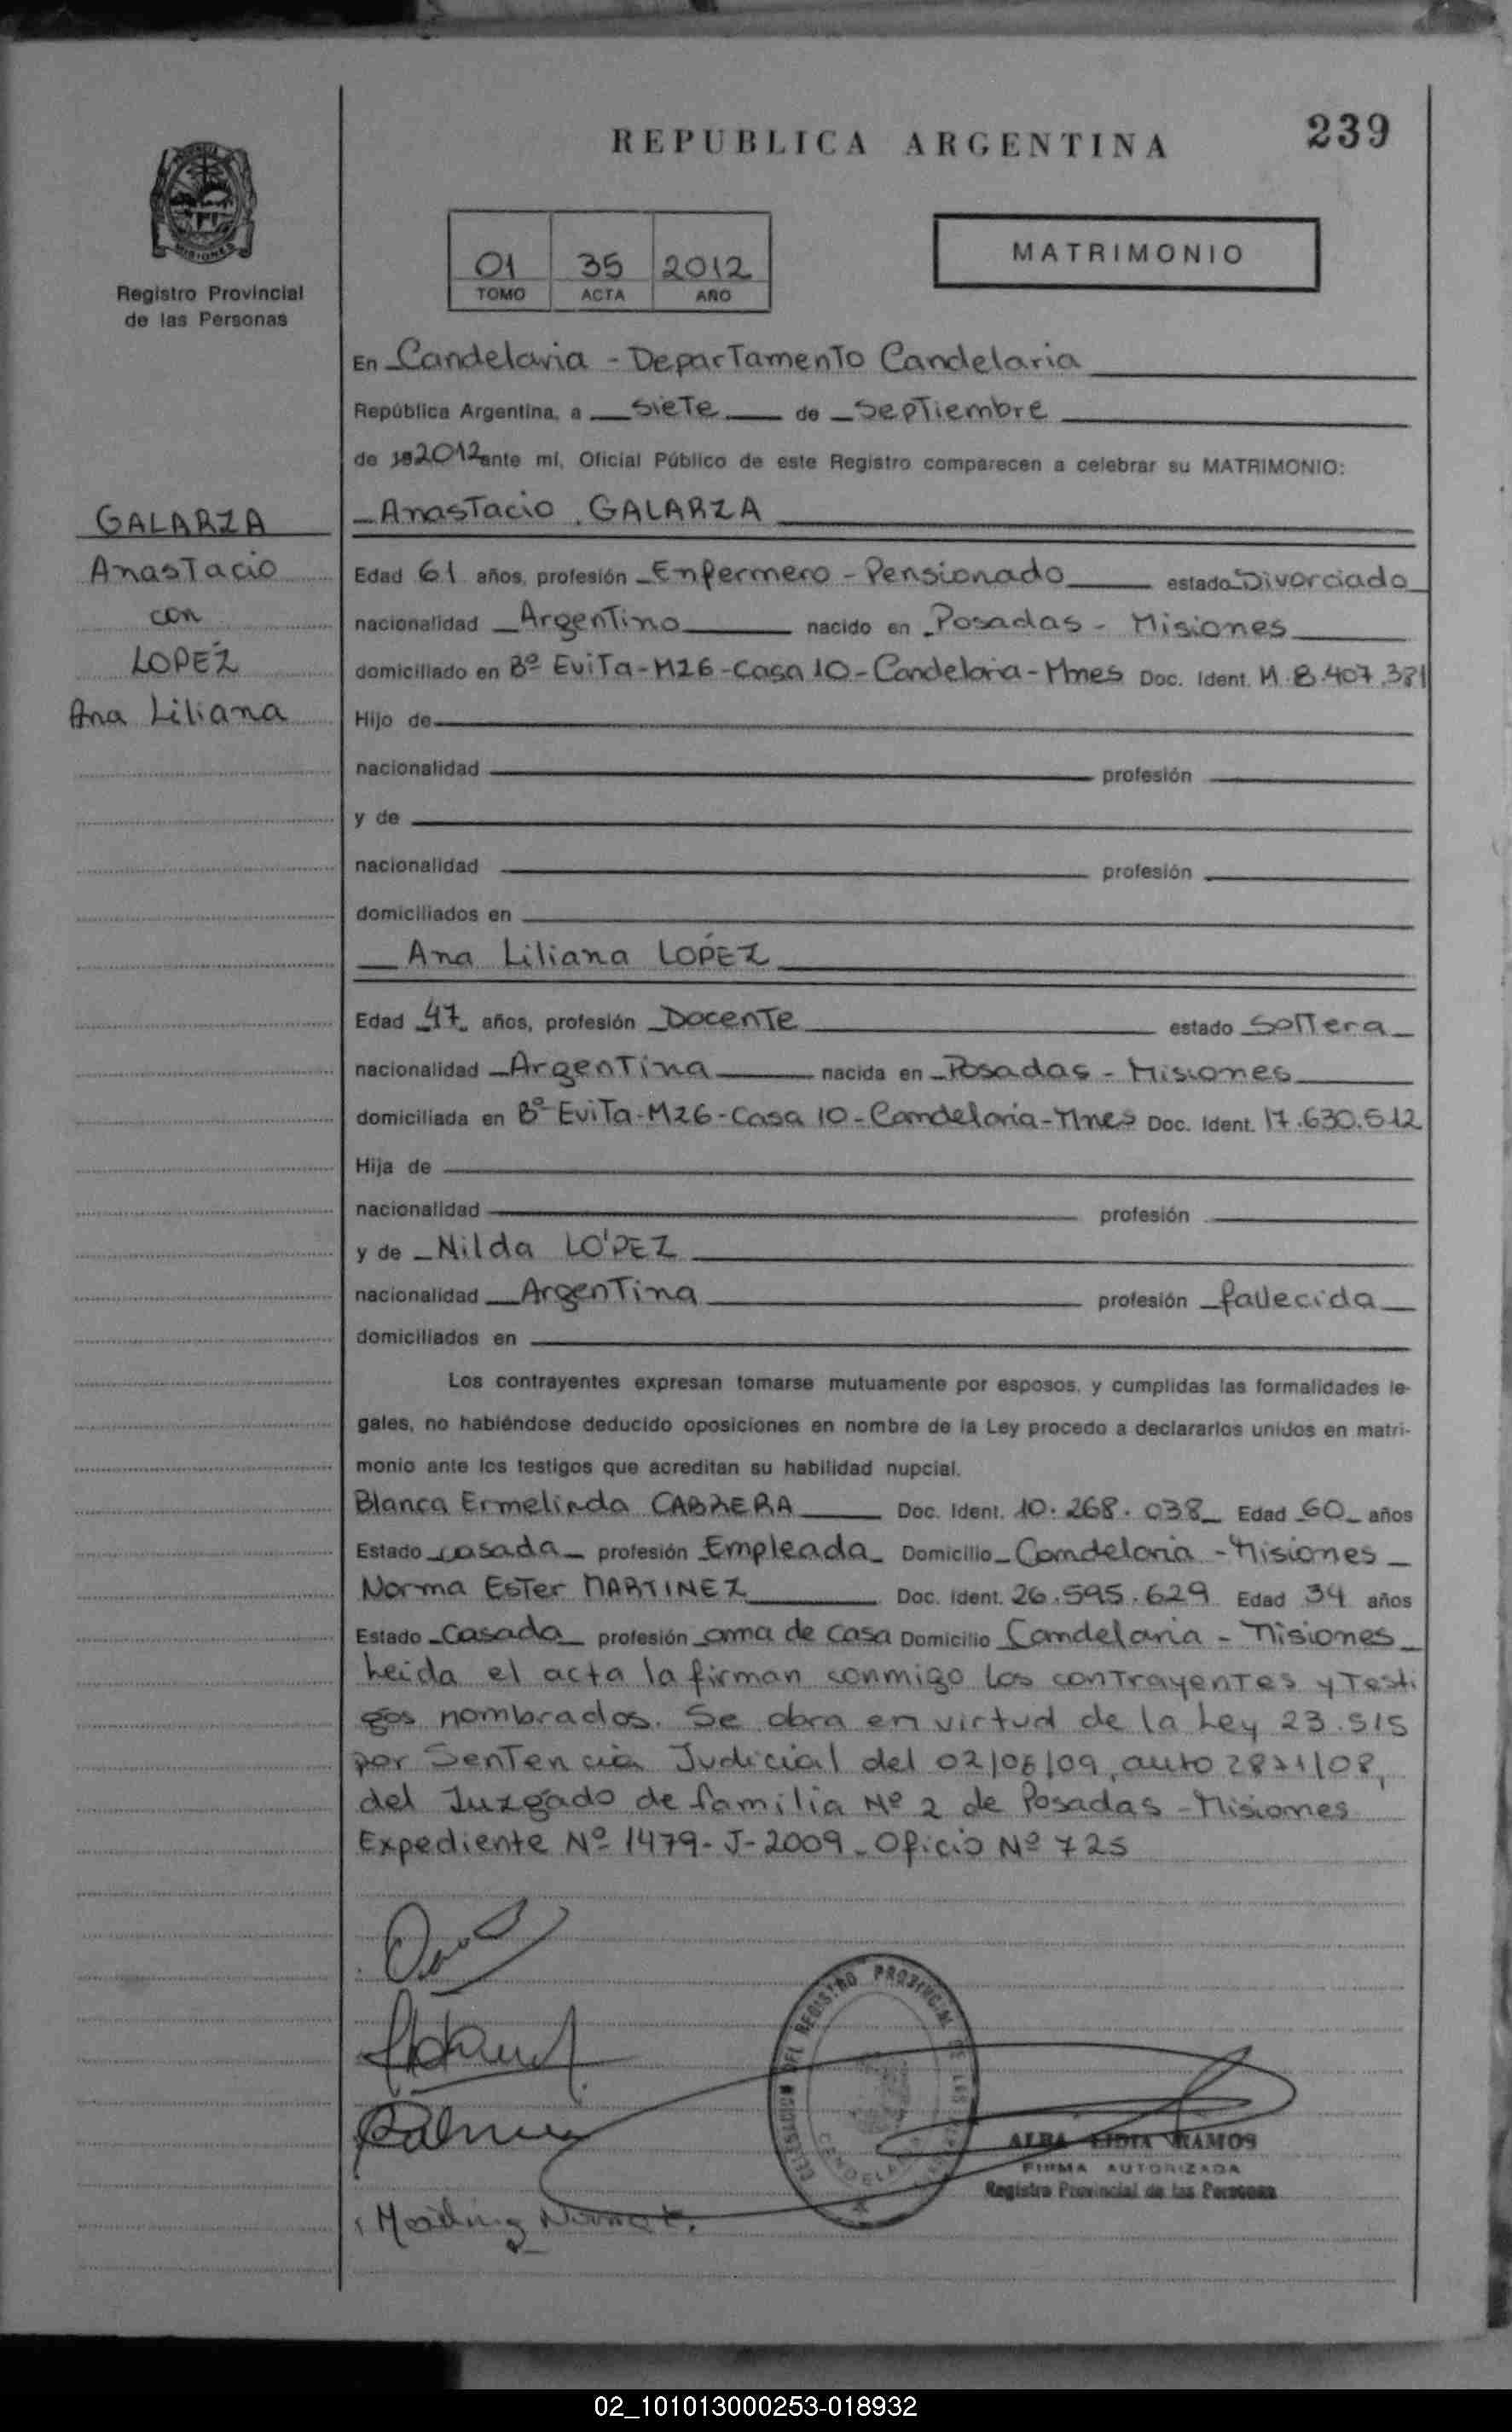 REPUBLICA ARGENTINA
239
MISIONES
Registro Provincial
de las Personas
01 35 2012
TOMO ACTA AÑO
MATRIMONIO
En Candelaria - Departamento Candelaria
República Argentina, a siete de Septiembre
de 19 2012 ante mí, Oficial Público de este Registro comparecen a celebrar su MATRIMONIO:
GALARZA
Anastacio
con
LOPEZ
Ana Liliana
Anastacio GALARZA
Edad 61 años, profesión Enfermero - Pensionado estado Divorciado
nacionalidad Argentino nacido en Posadas - Misiones
domiciliado en Bº Evita-M26-Casa 10-Candelaria-Mnes Doc. Ident. M.8.407.381
Hijo de
nacionalidad profesión
y de
nacionalidad profesión
domiciliados en
Ana Liliana LOPÉZ
Edad 47 años, profesión Docente estado Soltera
nacionalidad Argentina nacida en Posadas - Misiones
domiciliada en Bº Evita-M26-Casa 10-Candelaria-Mnes Doc. Ident. 17.630.512
Hija de
nacionalidad profesión
y de Nilda LÓPEZ
nacionalidad Argentina profesión fallecida
domiciliados en
Los contrayentes expresan tomarse mutuamente por esposos, y cumplidas las formalidades le-
gales, no habiéndose deducido oposiciones en nombre de la Ley procedo a declararlos unidos en matri-
monio ante los testigos que acreditan su habilidad nupcial.
Blanca Ermelinda CABRERA Doc. Ident. 10.268.038 Edad 60 años
Estado casada profesión Empleada Domicilio Candelaria - Misiones
Norma Ester MARTINEZ Doc. Ident. 26.595.629 Edad 34 años
Estado Casada profesión ama de casa Domicilio Candelaria - Misiones
Leida el acta la firman conmigo los contrayentes y testi
gos nombrados. Se obra en virtud de la Ley 23.515
por Sentencia Judicial del 02/06/09, auto 2871/08,
del Juzgado de familia Nº 2 de Posadas - Misiones
Expediente Nº 1479-J-2009. Oficio Nº 725
DELEGACION DEL REGISTRO PROVINCIAL DE LAS
ALBA LIDIA RAMOS
FIRMA AUTORIZADA
Registro Provincial de las Personas
02_101013000253-018932